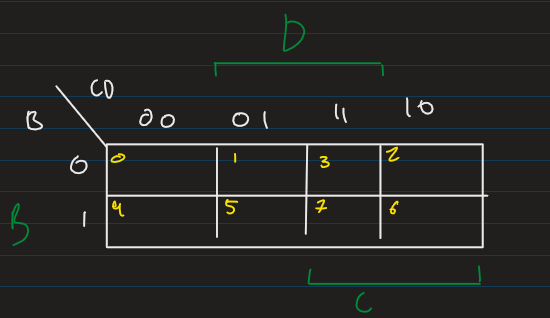 D
CD
B 00 01 11 10
0 0 1 3 2
B 1 4 5 7 6
C